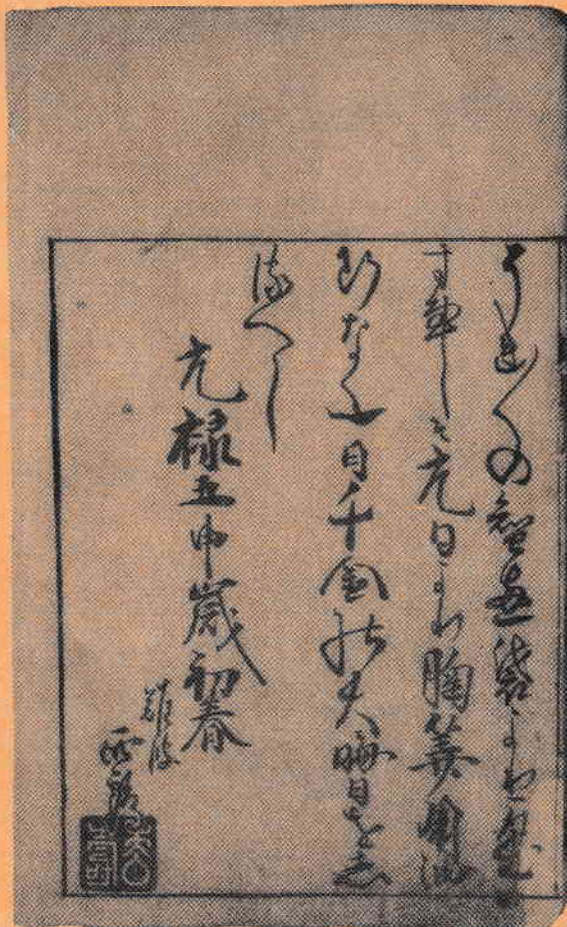 それ〳〵の智恵袋より取出
す事そ元日より胸算用油
断なく一日千金の大晦日をし
るへし
元禄五申歳初春
難波
西鶴